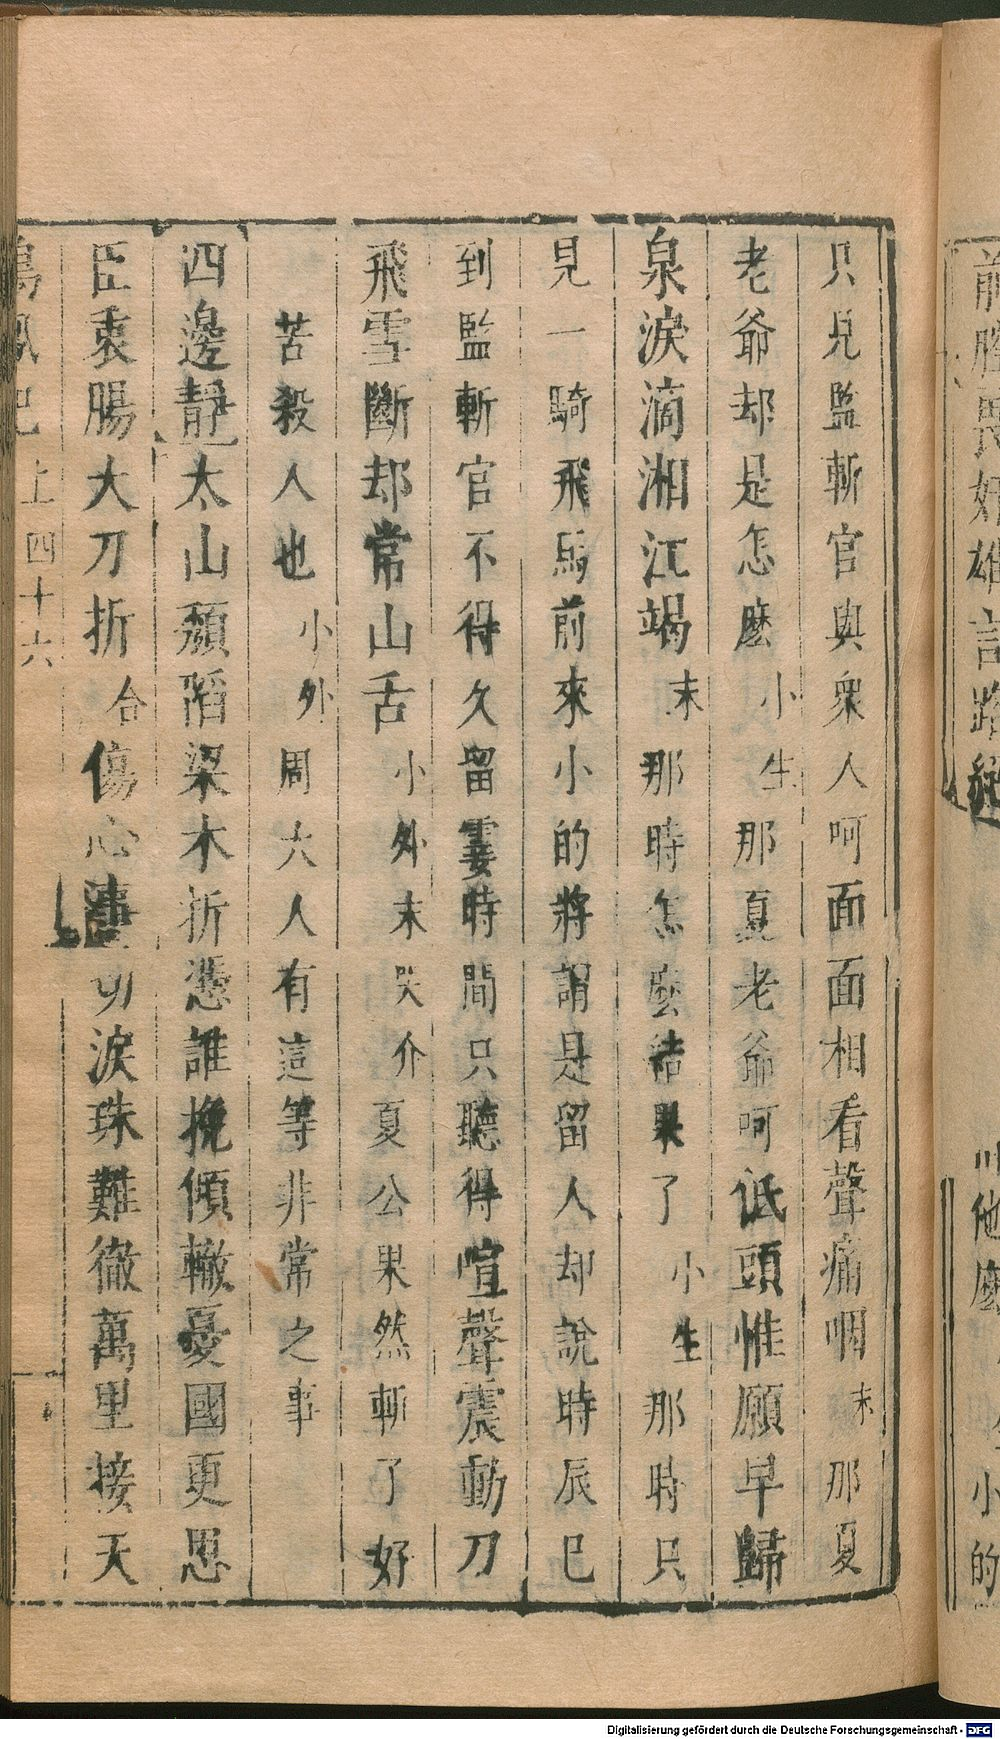 只見監斬官與衆人呵面面相看聲痛咽末那夏
老爺却是怎麽小生那夏老爺呵低頭惟願早歸
泉淚滴湘江竭末那時怎麽結果了小生那時只
見一騎飛馬前來小的將謂是留人却說時辰已
到監斬官不得久留霎時間只聽得喧聲震動刀
飛雪斷却常山舌小外末哭介夏公果然斬了好
苦殺人也小外周大人有這等非常之事
四邊靜太山頹陷梁木折憑誰挽傾轍憂國更思
臣衷腸大刀折合傷心切淚珠難徹萬里接天
鳴鳳記上四十六
前 奸雄言路
他麽
小的
Digitalisierung gefördert durch die Deutsche Forschungsgemeinschaft - DFG